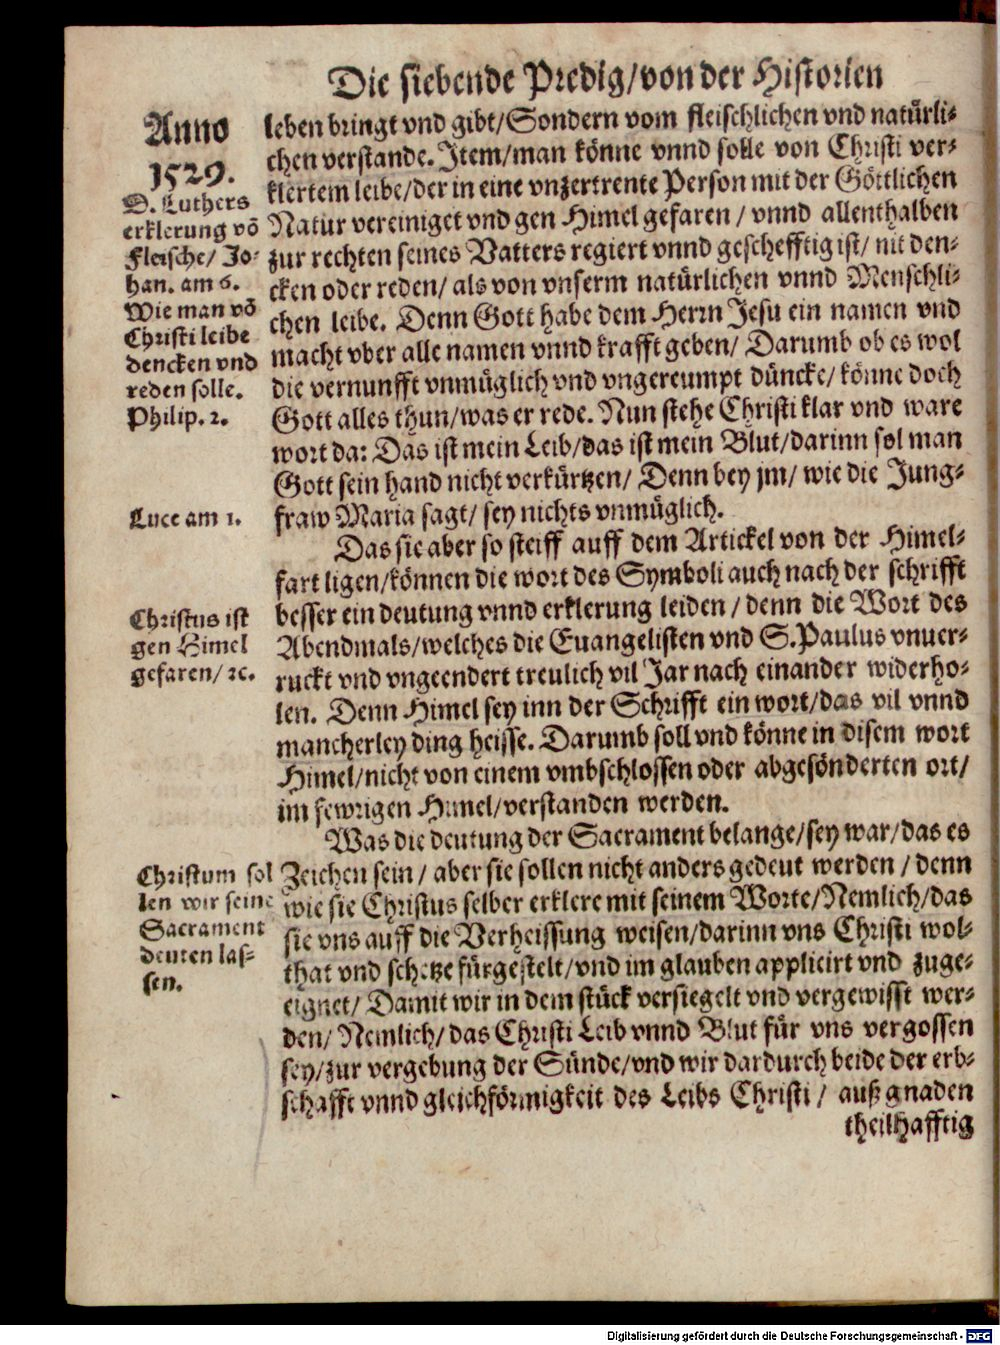 Die siebende Predig/von der Historien
Anno
1529.
D. Luthers
erklerung võ
Fleische/ Jo-
han. am 6.
Wie man võ
Christi leibe
dencken vnd
reden solle.
Philip. 2.
Luce am 1.
Christus ist
gen Himel
gefaren/ ꝛc.
Christum sol
len wir seine
Sacrament
deuten las-
sen.
leben bringt vnd gibt/Sondern vom fleischlichen vnd natürli-
chen verstande. Item/man könne vnnd solle von Christi ver-
klertem leibe/der in eine vnzertrente Person mit der Göttlichen
Natur vereiniget vnd gen Himel gefaren / vnnd allenthalben
zur rechten seines Vatters regiert vnnd geschefftig ist/ nit den-
cken oder reden/ als von vnserm natürlichen vnnd Menschli-
chen leibe. Denn Gott habe dem Herrn Jesu ein namen vnd
macht vber alle namen vnnd krafft geben/ Darumb ob es wol
die vernunfft vnmüglich vnd vngereumpt düncke/ könne doch
Gott alles thun/was er rede. Nun stehe Christi klar vnd ware
wort da: Das ist mein Leib/das ist mein Blut/darinn sol man
Gott sein hand nicht verkürtzen/ Denn bey jm/ wie die Jung-
fraw Maria sagt/ sey nichts vnmüglich.
Das sie aber so steiff auff dem Artickel von der Himel-
fart ligen/können die wort des Symboli auch nach der schrifft
besser ein deutung vnnd erklerung leiden / denn die Wort des
Abendmals/welches die Euangelisten vnd S.Paulus vnuer-
ruckt vnd vngeendert treulich vil Jar nach einander widerho-
len. Denn Himel sey inn der Schrifft ein wort/das vil vnnd
mancherley ding heisse. Darumb soll vnd könne in disem wort
Himel/nicht von einem vmbschlossen oder abgesönderten ort/
im fewrigen Himel/verstanden werden.
Was die deutung der Sacrament belange/sey war/das es
Zeichen sein / aber sie sollen nicht anders gedeut werden / denn
wie sie Christus selber erklere mit seinem Worte/Nemlich/das
sie vns auff die Verheissung weisen/darinn vns Christi wol-
that vnd schetze fürgestelt/vnd im glauben applicirt vnd zuge-
eignet/ Damit wir in dem stück versiegelt vnd vergewisst wer-
den/ Nemlich/das Christi Leib vnnd Blut für vns vergossen
sey/zur vergebung der Sünde/vnd wir dardurch beide der erb-
schafft vnnd gleichförmigkeit des Leibs Christi / auß gnaden
theilhafftig
Digitalisierung gefördert durch die Deutsche Forschungsgemeinschaft - DFG